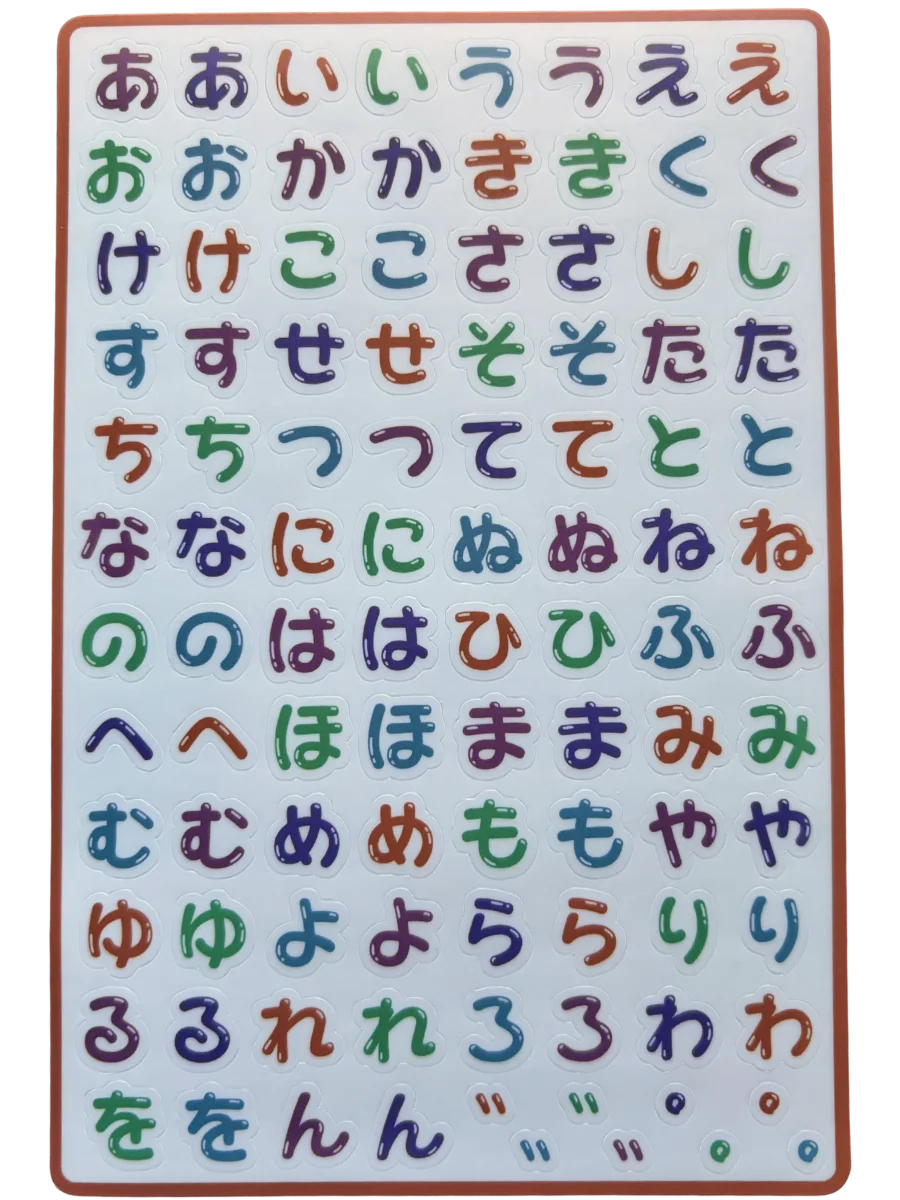 ああいいううええ
おおかかききくく
けけここささしし
すすせせそそたた
ちちつつててとと
ななににぬぬねね
ののははひひふふ
へへほほままみみ
むむめめももやや
ゆゆよよららりり
るるれれろろわわ
ををんん゛゛゜゜
゛゛゜゜